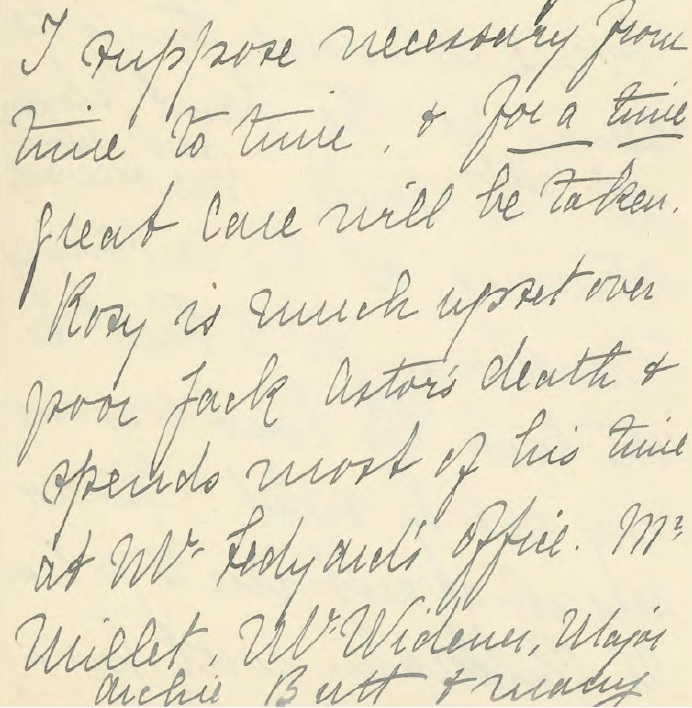 I suppose necessary from
time to time, & for a time
great care will be taken.
Rosy is much upset over
poor Jack Astor's death &
spends most of his time
at Mr. Ledyard's office. Mr.
Millet, Mr. Widener, Major
Archie Butt & many